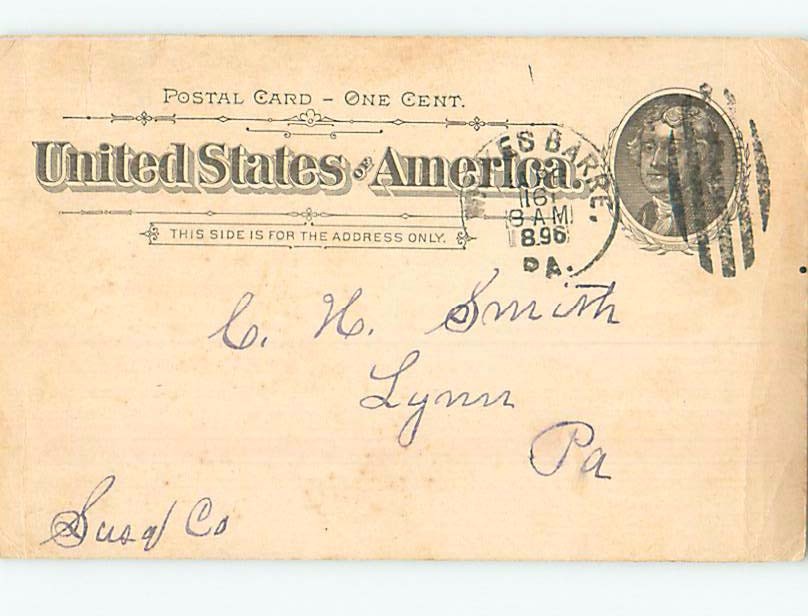 POSTAL CARD – ONE CENT.
United States OF America.
THIS SIDE IS FOR THE ADDRESS ONLY.
ES BARRE.
8 AM
896
PA.
C. H. Smith
Lynn
Pa
Susq Co